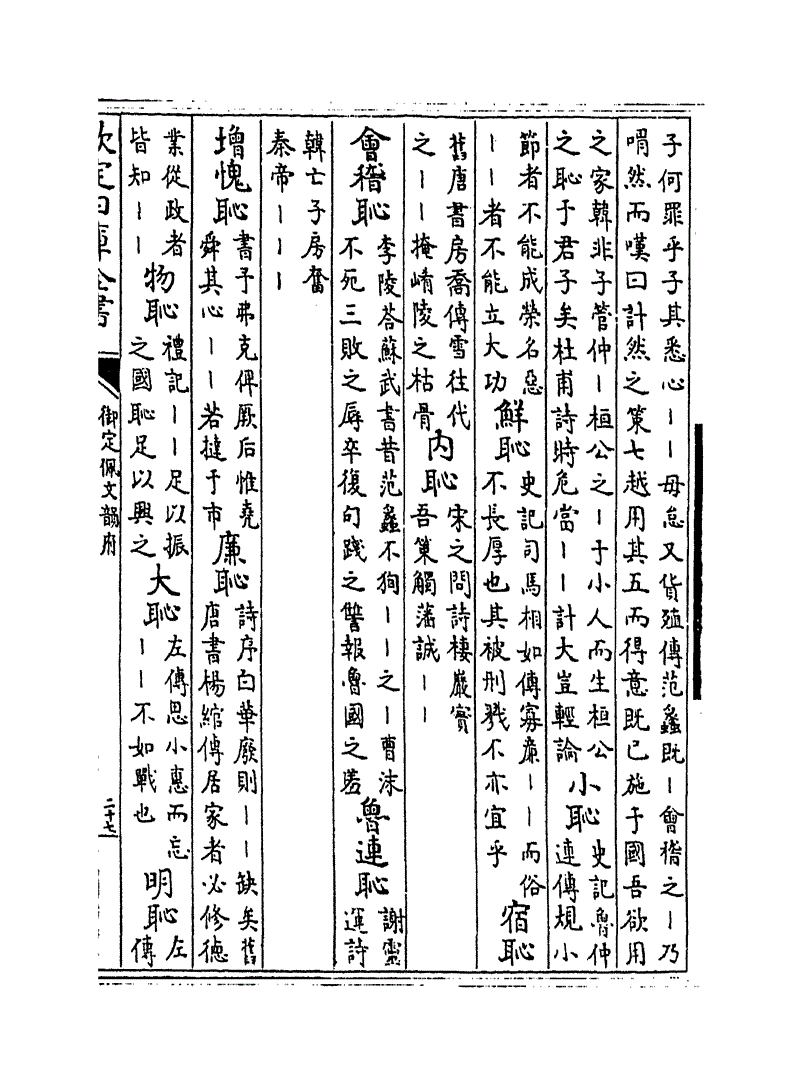 子何罪乎子其悉心｜｜毋怠又貨殖傳范蠡既｜會稽之｜乃
喟然而嘆曰計然之策七越用其五而得意既已施于國吾欲用
之家韓非子管仲｜桓公之｜于小人而生桓公
之恥于君子矣杜甫詩時危當｜｜計大豈輕論
小恥
史記魯仲
連傳規小
節者不能成榮名惡
｜｜者不能立大功
鮮恥
史記司馬相如傳寡廉｜｜而俗
不長厚也其被刑戮不亦宜乎
宿恥
舊唐書房喬傳雪往代
之｜｜掩崤陵之枯骨
内恥
宋之問詩棲巖實
吾策觸藩誠｜｜
會稽恥
李陵荅蘇武書昔范蠡不狥｜｜之｜曹沫
不死三敗之辱卒復句踐之讐報魯國之羞
魯連恥
謝靈
運詩
韓亡子房奮
秦帝｜｜｜
增愧恥
書予弗克俾厥后惟堯
舜其心｜｜若撻于市
廉恥
詩序白華廢則｜｜缺矣舊
唐書楊綰傳居家者必修德
業從政者
皆知｜｜
物恥
禮記｜｜足以振
之國恥足以興之
大恥
左傳思小惠而忘
｜｜不如戰也
明恥
左
傳
欽定四庫全書
御定佩文韻府
二十七